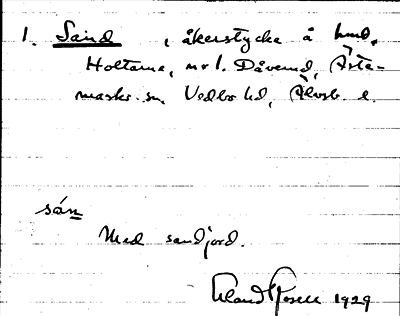 1. Sand , åkerstycke å hmd.
Holtarna, nr 1. Dåverud, Ärte-
marks sn. Vedbo hd, Älvsb. l.
sán
Med sandjord.
Erland Rosell 1929